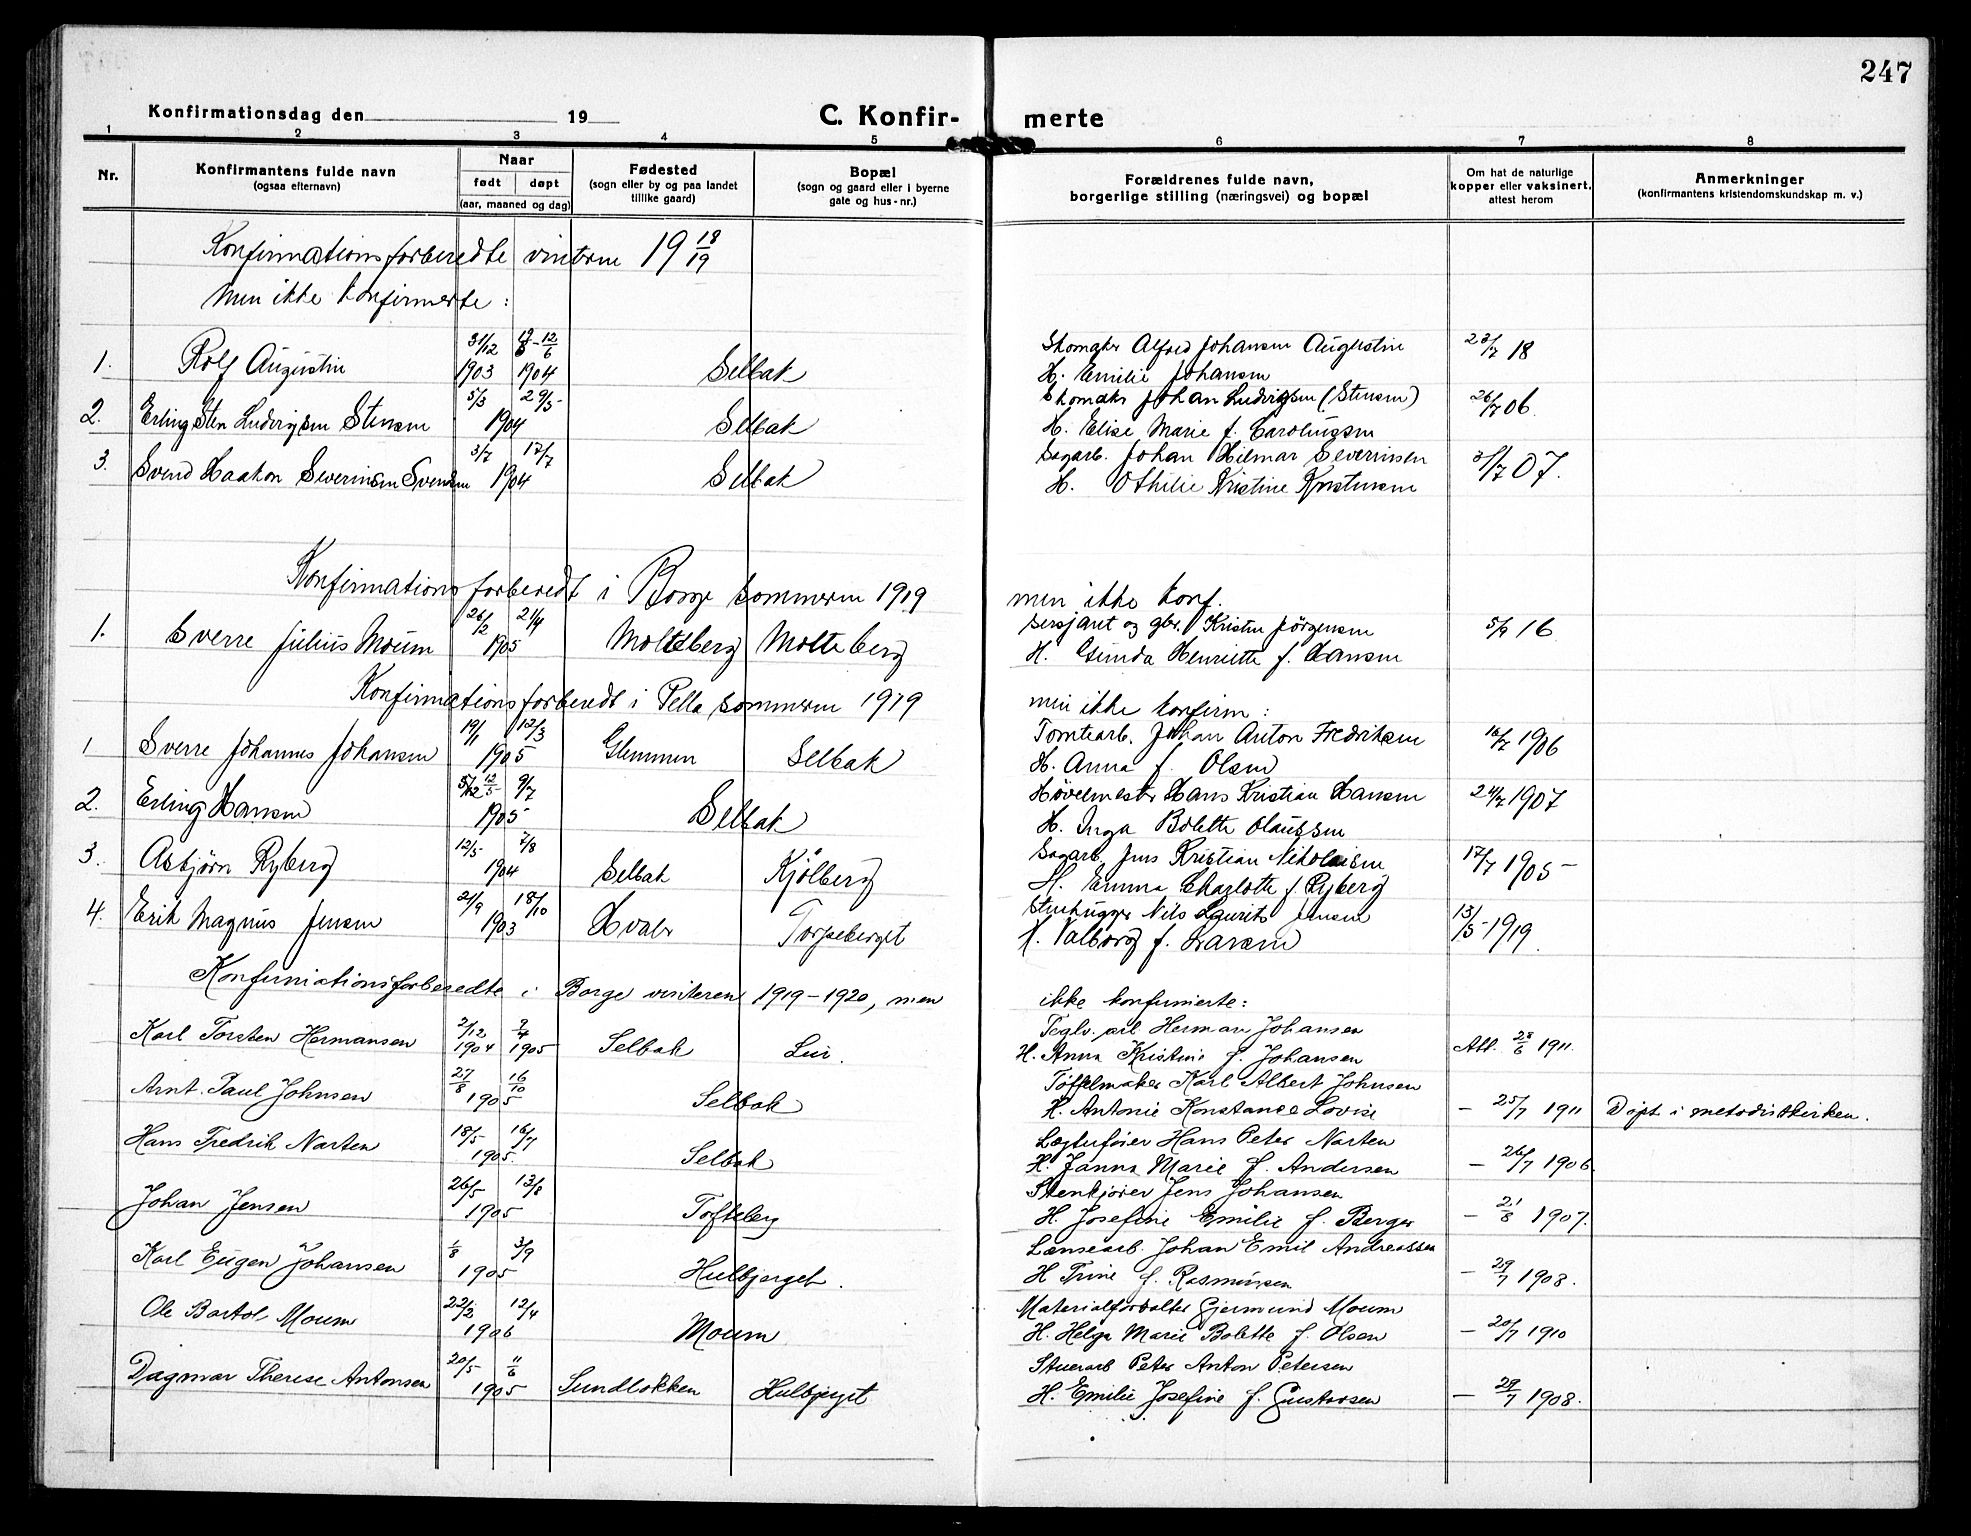 247
Konfirmationsdag den 19 C. Konfir- merte
1 2 3 4 5 6 7 8
Nr. Konfirmantens fulde navn (ogsaa efternavn) Naar født døpt (aar, maaned og dag) Fødested (sogn eller by og paa landet tillike gaard) Bopæl (sogn og gaard eller i byerne gate og hus-nr.) Forældrenes fulde navn, borgerlige stilling (næringsvei) og bopæl Om hat de naturlige kopper eller vaksinert, attest herom Anmerkninger (konfirmantens kristendomskundskap m. v.)
Konfirmationsforberedte vinteren 19 18/19
men ikke konfirmerte:
1. Rolf Augustin 31/12 1903 12/6 1904 Selbak Skomaker Alfred Johansen Augustin 23/7 18
H. Emilie Johansen
2. Erling Sten Ludvigsen Stensen 5/3 29/5 1904 Selbak Skomaker Johan Ludvigsen (Stensen) 26/7 06.
H. Elise Marie f. Carolinssen
3. Svend Haakon Severinsen Svendsen 3/7 17/7 1904 Selbak Sagarb. Johan Hilmar Severinsen 31/7 07.
H. Othilie Kristine Kristensen
Konfirmationsforberedt i Borge sommeren 1919 men ikke konf.
1. Sverre Julius Moum 26/2 21/4 1905 Molteberg Molteberg Sersjant og gbr. Kristen Jörgensen 5/9 16
H. Gunda Henriette f. Hansen
Konfirmationsforberedt i Pella sommeren 1919 men ikke konfirm:
1 Sverre Johannes Johansen 19/11 12/3 1905 Glemmen Selbak Tomtearb. Johan Anton Fredriksen 16/7 1906
H. Anna f. Olsen
2. Erling Hansen 12/5 9/7 1905 Selbak Høvelmester Hans Kristian Hansen 24/7 1907
H. Inga Bolette Olaussen
3. Asbjörn Ryberg 12/5 7/8 1904 Selbak Kjölberg Sagarb. Jens Kristian Nikolaisen 17/7 1905 -
H. Emma Charlotte f. Ryberg
4. Erik Magnus Jensen 21/9 18/10 1903 Hvaler Torpeberget Stenhugger Nils Laurits Jensen 13/5 - 1919.
H. Valborg f. Larsen
Konfirmationsforberedte i Borge vinteren 1919 - 1920, men ikke konfirmerte:
Karl Torsten Hermansen 2/12 1904 2/4 1905 Selbak Lui. Teglv. arb. Herman Johansen Att. 28/6 1911.
H. Anna Kristine f. Johansen
Arnt Paul Johnsen 27/8 16/10 1905 Selbak Töffelmaker Karl Albert Johnsen
H. Antonie Konstance Lovise - 25/7 1911 Döpt i metodistkirken.
Hans Fredrik Narten 18/5 16/7 1905. Selbak Lægterfoier Hans Peter Narten
H. Janna Marie f. Andersen - 26/7 1906
Johan Jensen 26/5 13/8 1905 Tofteberg Stenkjører Jens Johansen
H. Josefine Emilie f. Berger - 21/8 1907.
Karl Eugen Johansen 1/8 3/9 1905 Hulbjerget. Lænsearb. Johan Emil Andreassen
H Trine f. Rasmussen - 29/7 1908.
Ole Bartol. Moum 22/2 12/4 1906 Moum Materialforvalter Gjermund Moum
H. Helga Marie Bolette f. Olsen - 20/7 1910
Dagmar Therese Antonsen 20/5 11/6 1905 Sundløkken Hulbjerget Stuerarb Peter Anton Petersen
H. Emilie Josefine f. Gustavsen - 29/7 1908.